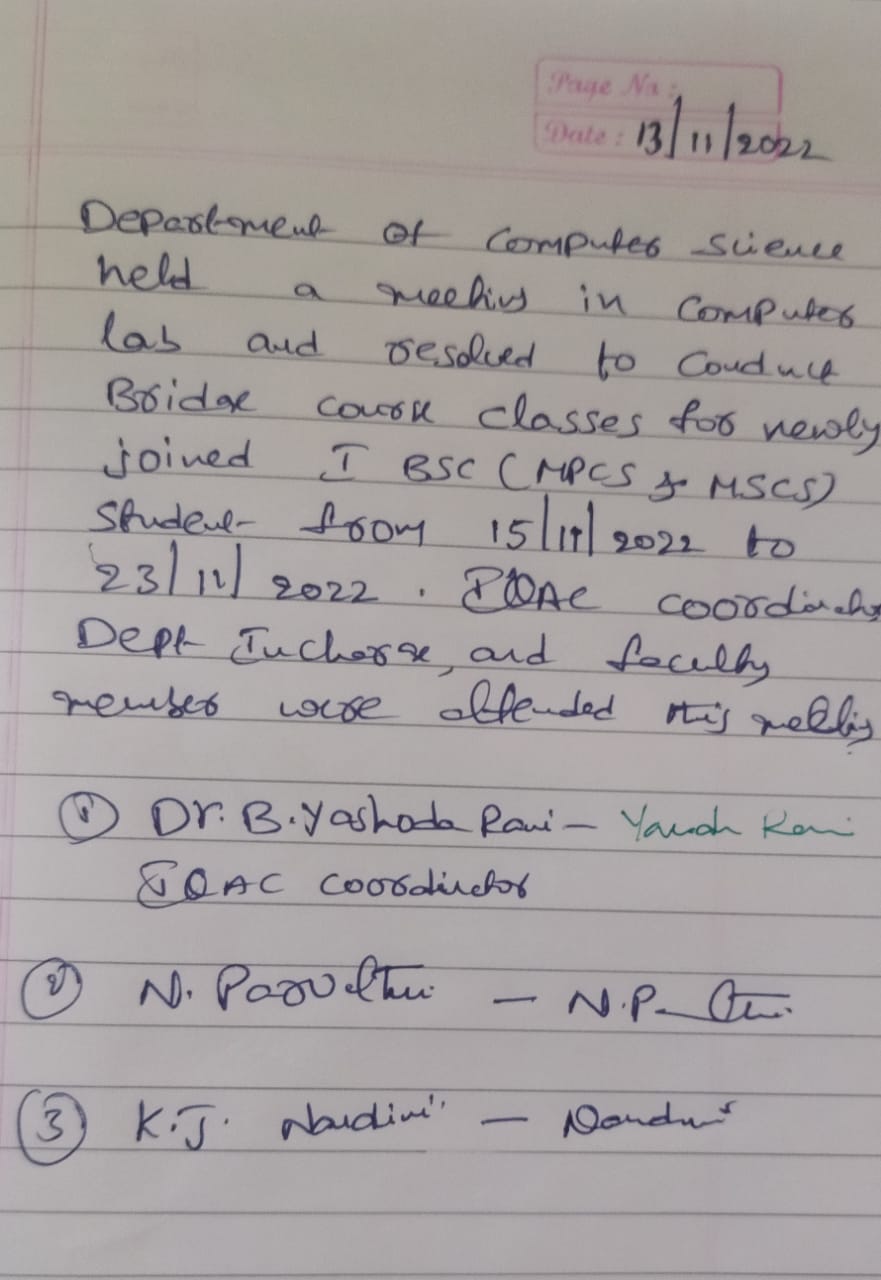 Page No :
Date : 13/11/2022
Department of Computer Science
held a meeting in Computer
lab and resolved to Conduct
Bridge course classes for newly
joined I BSC (MPCS & MSCS)
Student from 15/11/2022 to
23/11/2022. IQAC coordinator
Dept Incharge, and faculty
member were attended this meeting
① Dr. B. Yashoda Rani - Yasoda Rani
IQAC coordinator
② N. Parvathi - N.P
③ K.J. Nandini - Nandini